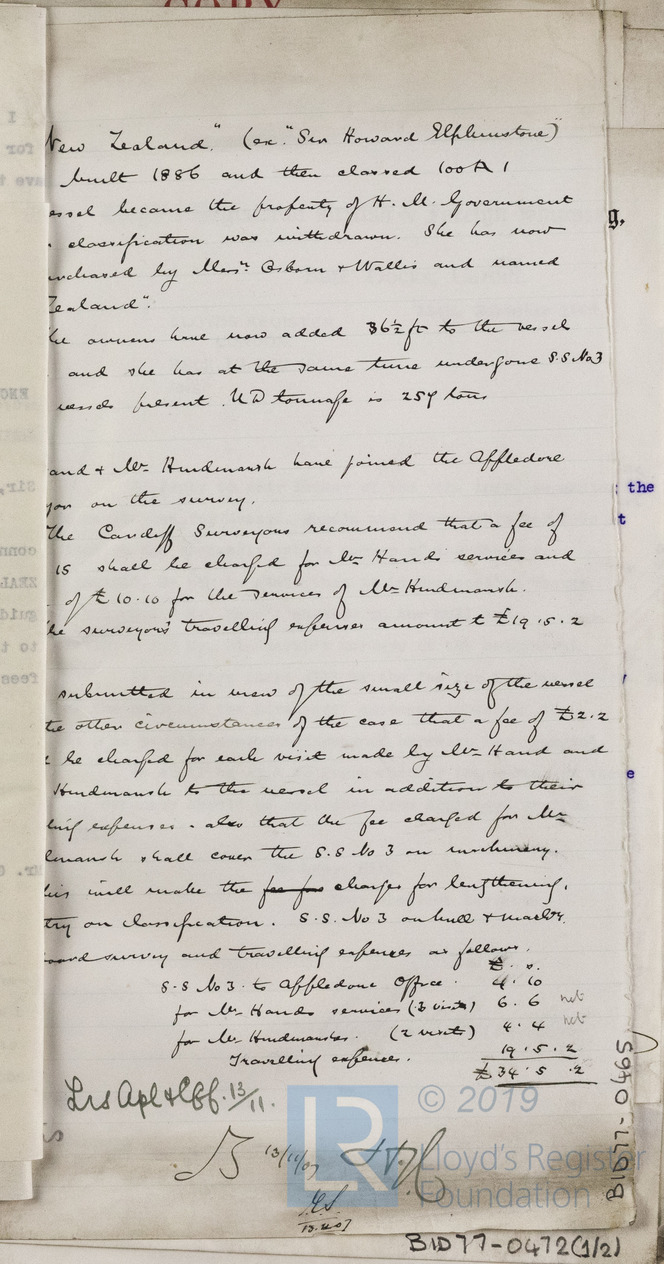 COPY
New Zealand". (ex "Sir Howard Elphinstone")
built 1886 and then classed 100A1
essel became the property of H. M. Government
classification was withdrawn. She has now
urchased by Messrs Osborn & Wallis and named
Zealand".
he owners have now added 36½ ft to the vessel
and she has at the same time undergone S.S No3
vessels present U D tonnage is 259 tons
and & Mr Hindmarsh have joined the Appledore
yor on the survey.
The Cardiff Surveyors recommend that a fee of
15 shall be charged for Mr Hands services and
of £10.10 for the services of Mr Hindmarsh.
he surveyors' travelling expenses amount to £19.5.2
submitted in view of the small size of the vessel
the other circumstances of the case that a fee of £2.2
be charged for each visit made by Mr Hand and
Hindmarsh to the vessel in addition to their
ling expenses. also that the fee charged for Mr
dmarsh shall cover the S.S No 3 on machinery.
his will make the charges for lengthening,
try on classification. S.S. No 3 on hull & machy.
oard survey and travelling expenses as follows.
£. s.
S.S No 3. to Appledore Office. 4. 10
for Mr Hands services (3 visits) 6. 6 net
for Mr Hindmarshs. (2 visits) 4. 4 net
Travelling expenses. 19. 5. 2
£ 34. 5. 2
Lrs Apl & Cff. 13/11.
13/11/07
13.11.07
g.
: the
t
e
BID77-0465
BID77-0472(1/2)
LR
© 2019
Lloyd's Register
Foundation